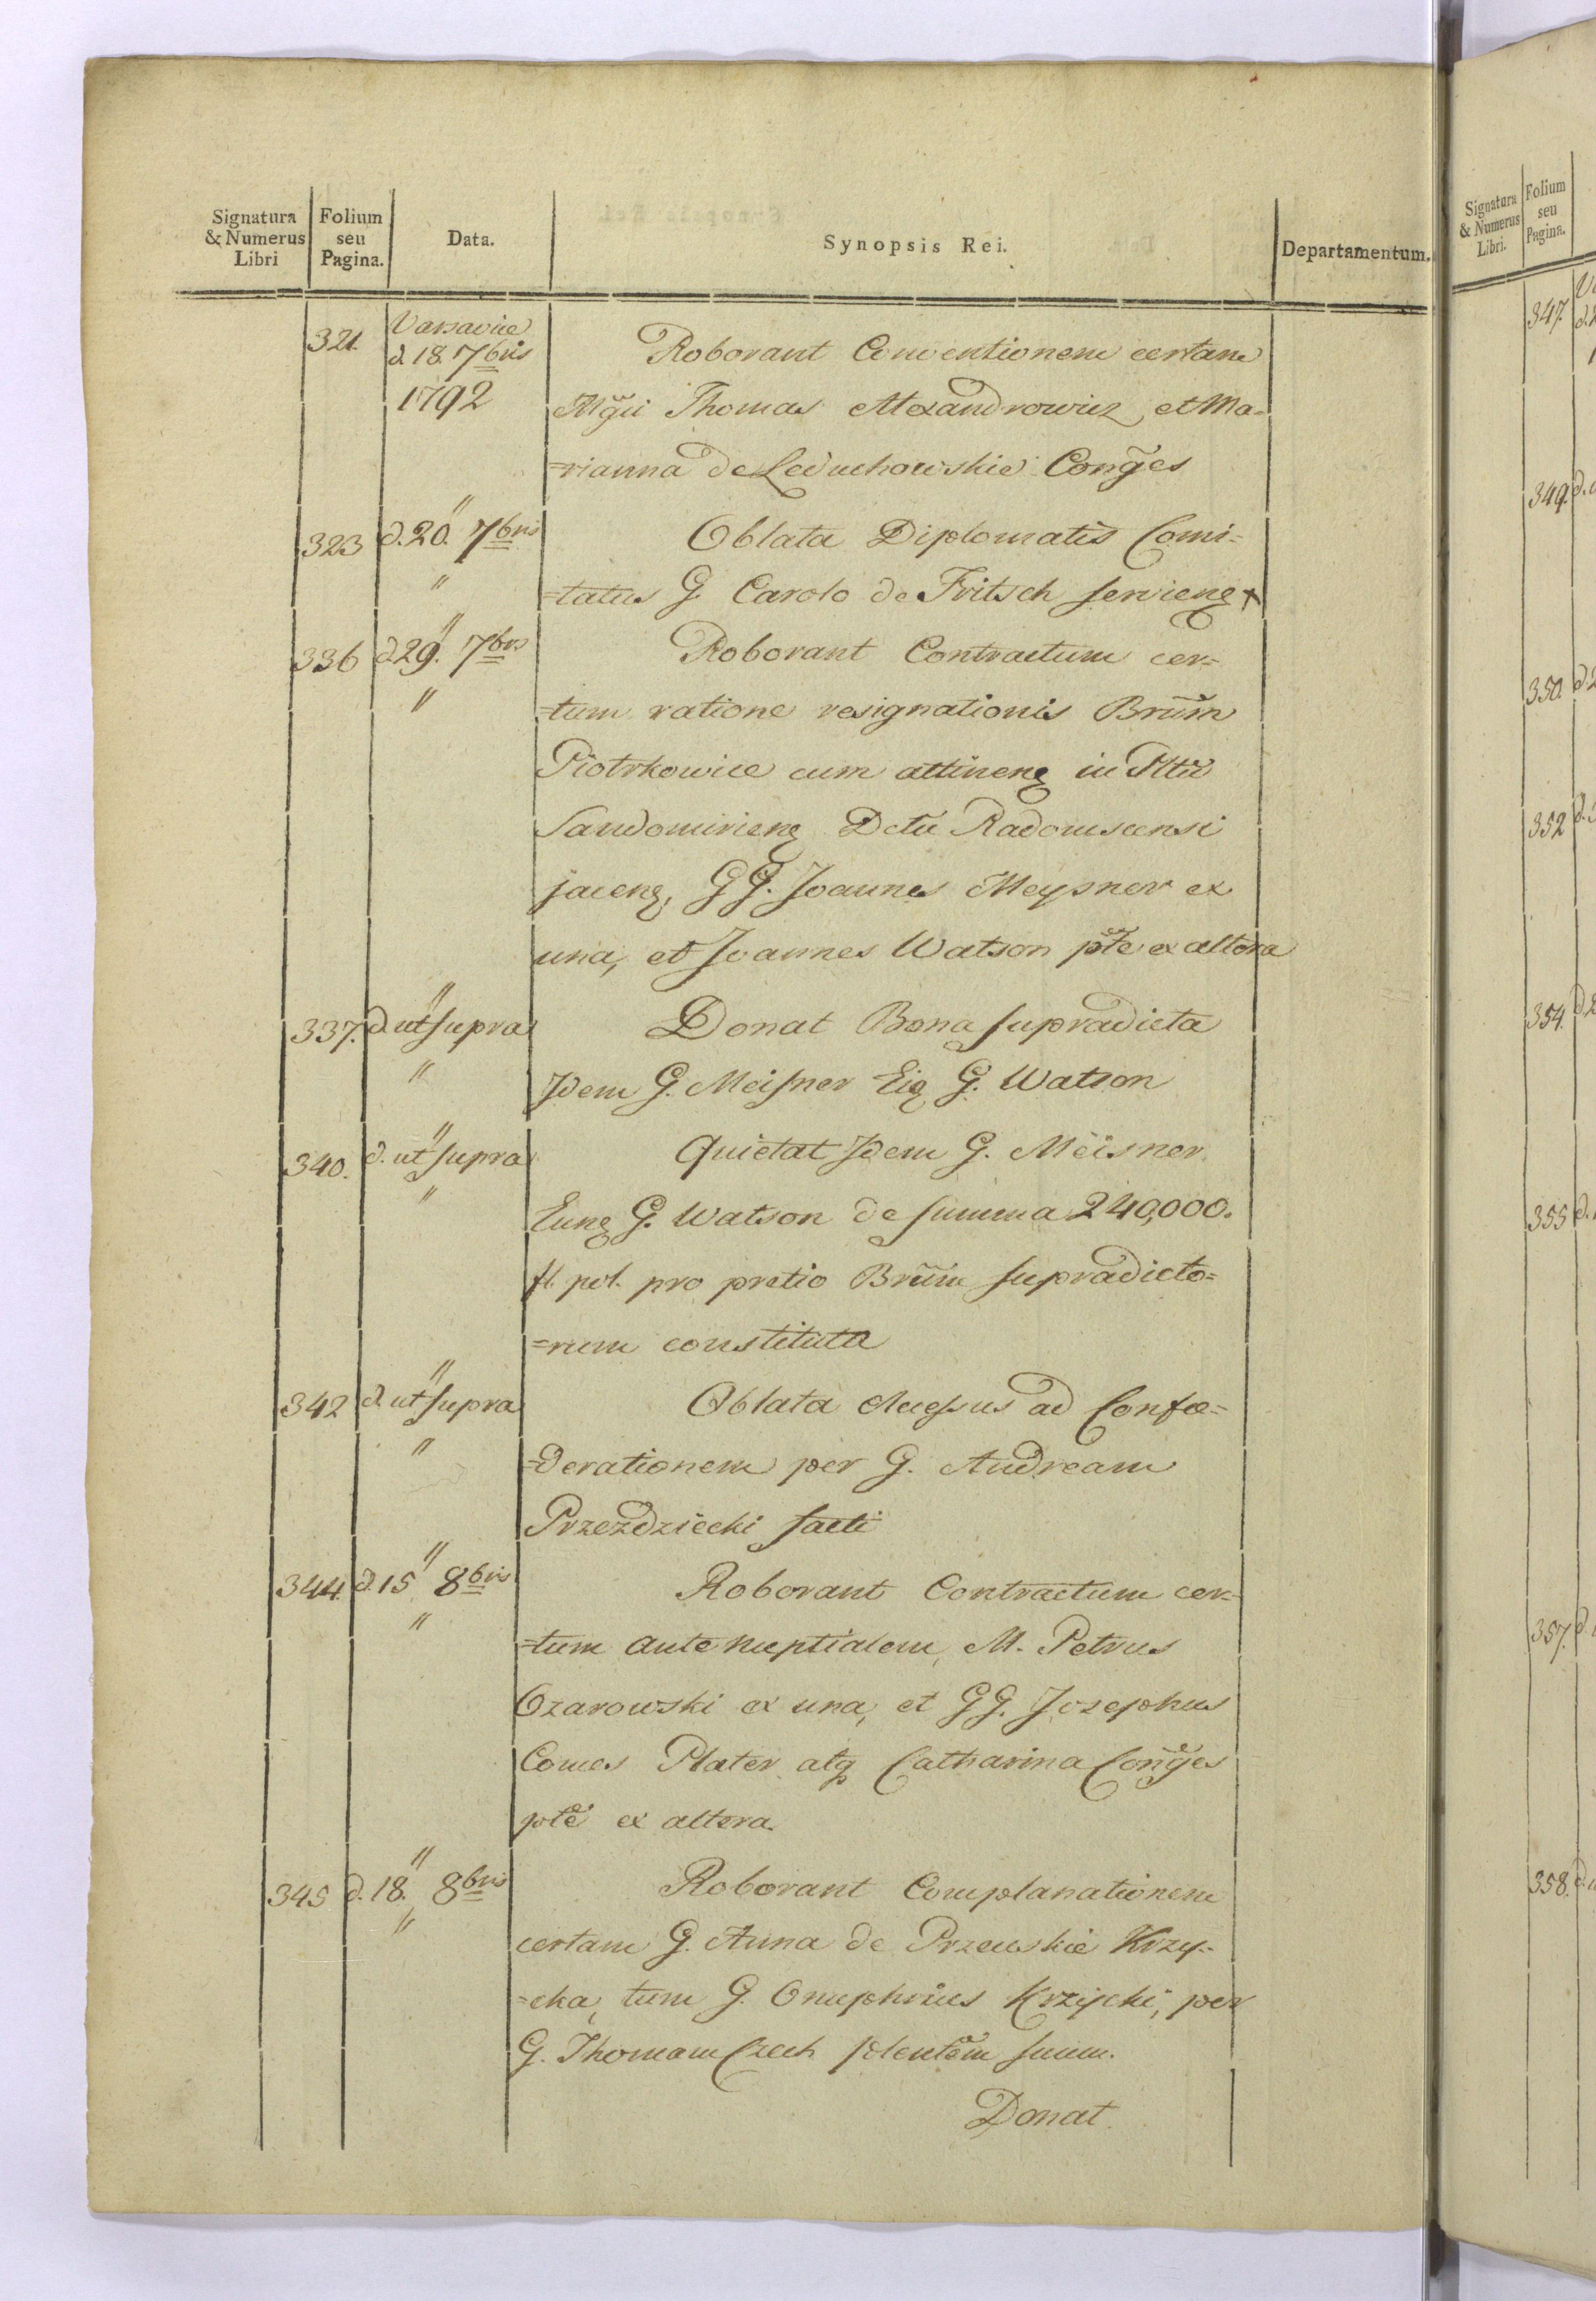 Signatura & Numerus Libri
Folium seu Pagina.
Data.
Synopsis Rei.
Departamentum.
321. Varsaviæ d. 18. 7bris 1792 Roborant Conventionem certam
Mg̃ci Thomas Alexandrowicz, et Ma=
=rianna de Leduchowskie Cong̃es
323 " d. 20. 7bris " Oblata Diplomatis Comi=
=tatus G. Carolo de Fritsch servienq
336 " d. 29. 7bris " Roborant Contractum cer=
=tum ratione resignationis Brũm
Piotrkowice cum attinenq in Pltũ
Sandomirienq Dctu Radomscensi
jacenq, GG. Joannes Meysner ex
una, et Joannes Watson ptẽ ex altera
337. " d. ut supra " Donat Bona supradicta
Idem G. Meisner Eiq G. Watson
340. " d. ut supra " Quietat Idem G. Meisner
Eunq G. Watson de summa 240,000.
fl. pol. pro pretio Brũm supradicto=
=rum constituta
342 " d. ut supra " Oblata Accessus ad Confæ=
=derationem per G. Andream
Przezdziecki facti
344. " d. 15 8bris " Roborant Contractum cer=
=tum ante nuptialem, M. Petrus
Ozarowski ex una, et GG. Josephus
Comes Plater atq Catharina Cong̃es
ptẽ ex altera.
345 " d. 18. 8bris " Roborant Complanationem
certam G. Anna de Przeuskie Krzy=
=cka, tum G. Onuphrius Krzycki, per
G. Thomam Czech plentẽm suum.
Donat.
Signatura & Numerus Libri.
Folium seu Pagina.
347.
349.
350.
352
354.
355
357.
358.